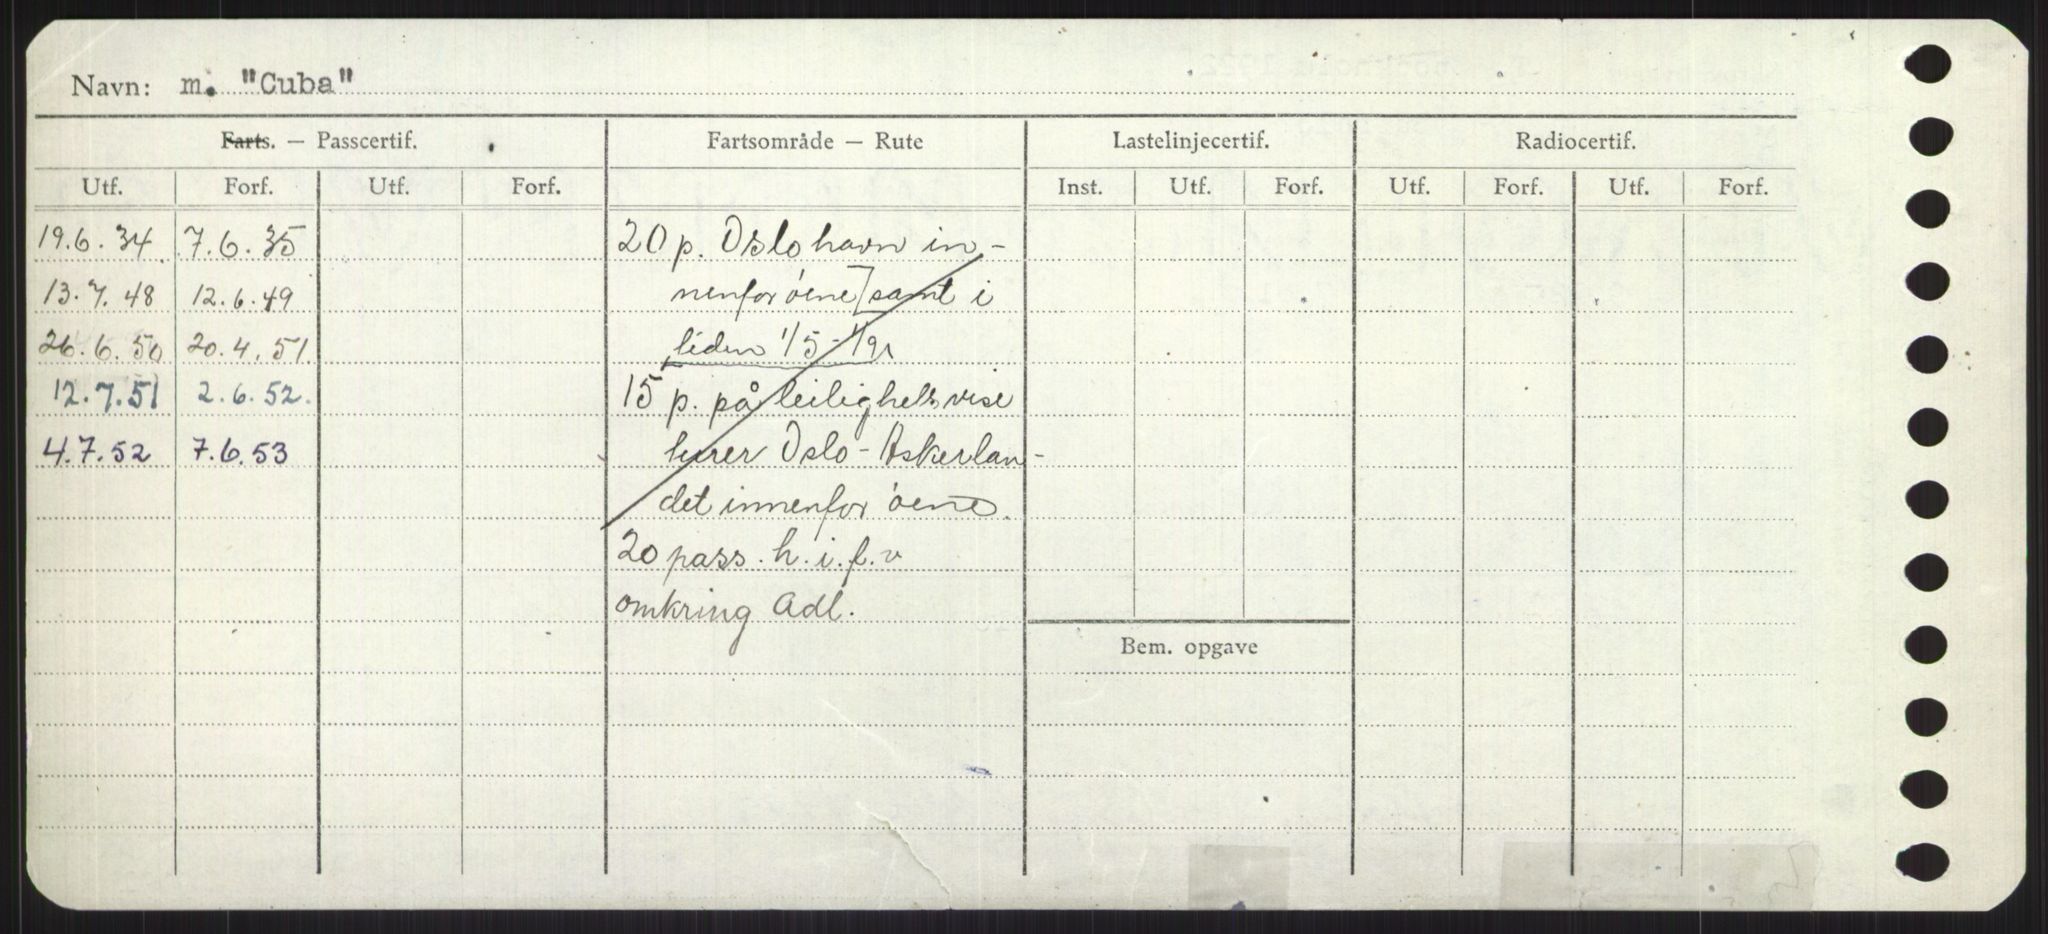 Navn: m. "Cuba"
Farts. — Passcertif. Fartsområde — Rute Lastelinjecertif. Radiocertif.
Utf. Forf. Utf. Forf. Inst. Utf. Forf. Utf. Forf. Utf. Forf.
19.6.34 7.6.35 20 p. Oslo havn in-
13.7.48 12.6.49 nenfor öene] samt i
26.6.50 20.4.51. tiden 1/5 - 1/9
12.7.51 2.6.52. 15 p. på leilighetsvise
4.7.52 7.6.53 turer Oslo - Askerlan-
det innenfor öene.
20 pass. h.i.f.v
omkring Adl.
Bem. opgave